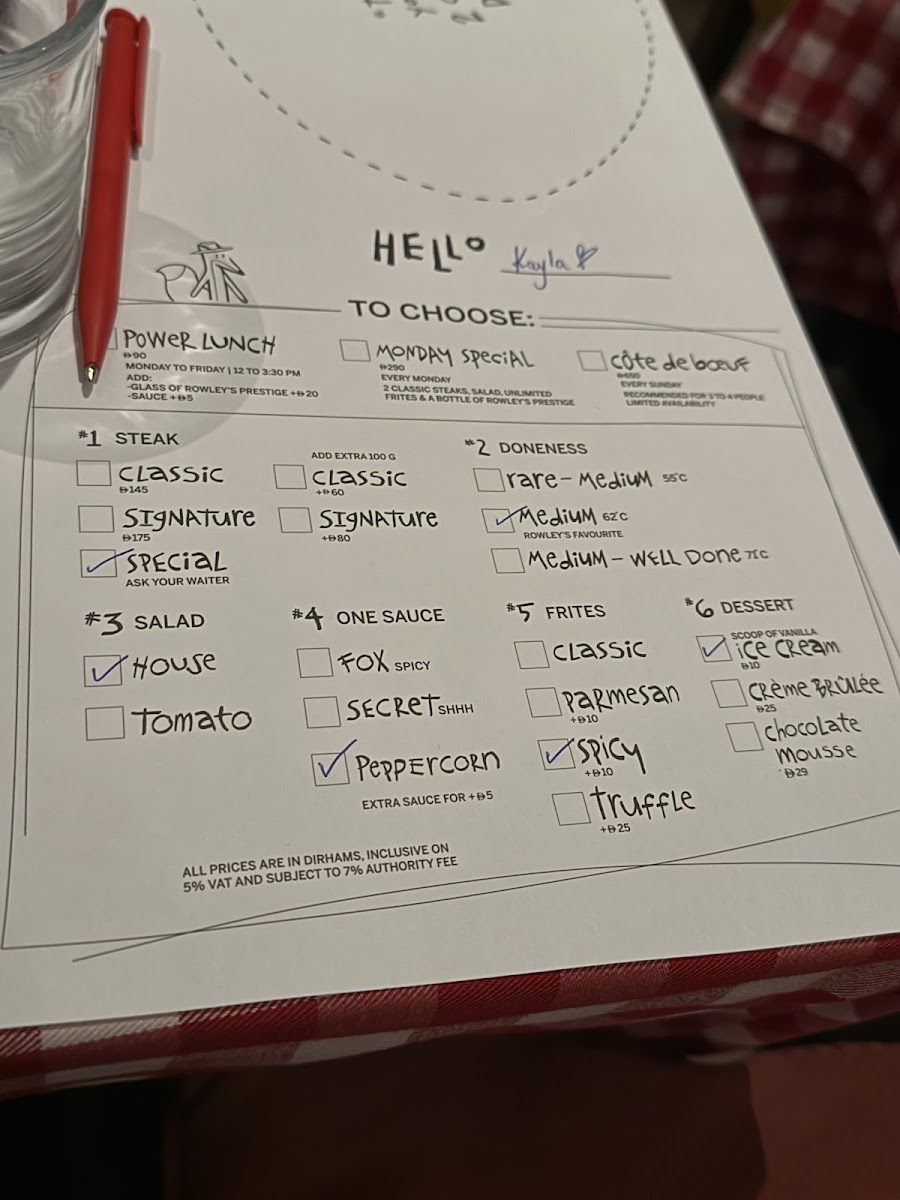 HELLO Kayla
TO CHOOSE:
POWER LUNCH
90
MONDAY TO FRIDAY | 12 TO 3:30 PM
ADD:
-GLASS OF ROWLEY'S PRESTIGE +20
-SAUCE +5
MONDAY SPECIAL
290
EVERY MONDAY
2 CLASSIC STEAKS, SALAD, UNLIMITED
FRITES & A BOTTLE OF ROWLEY'S PRESTIGE
CÔTE de bœuf
650
EVERY SUNDAY
RECOMMENDED FOR 3 TO 4 PEOPLE
LIMITED AVAILABILITY
#1 STEAK
CLASSIC
145
SIGNATURE
175
SPECIAL
ASK YOUR WAITER
ADD EXTRA 100 G
CLASSIC
+60
SIGNATURE
+80
#2 DONENESS
RARE - MEDIUM 55°C
MEDIUM 62°C
ROWLEY'S FAVOURITE
MEDIUM - WELL DONE 71C
#3 SALAD
HOUSE
TOMATO
#4 ONE SAUCE
FOX SPICY
SECRET SHHH
PEPPERCORN
EXTRA SAUCE FOR +5
#5 FRITES
CLASSIC
PARMESAN
+10
SPICY
+10
TRUFFLE
+25
#6 DESSERT
SCOOP OF VANILLA
ICE CREAM
10
CRÈME BRÛLÉE
25
CHOCOLATE
MOUSSE
29
ALL PRICES ARE IN DIRHAMS, INCLUSIVE ON
5% VAT AND SUBJECT TO 7% AUTHORITY FEE